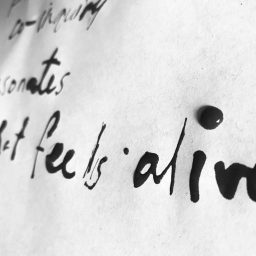 co-inquiry
sonates
t feels alive